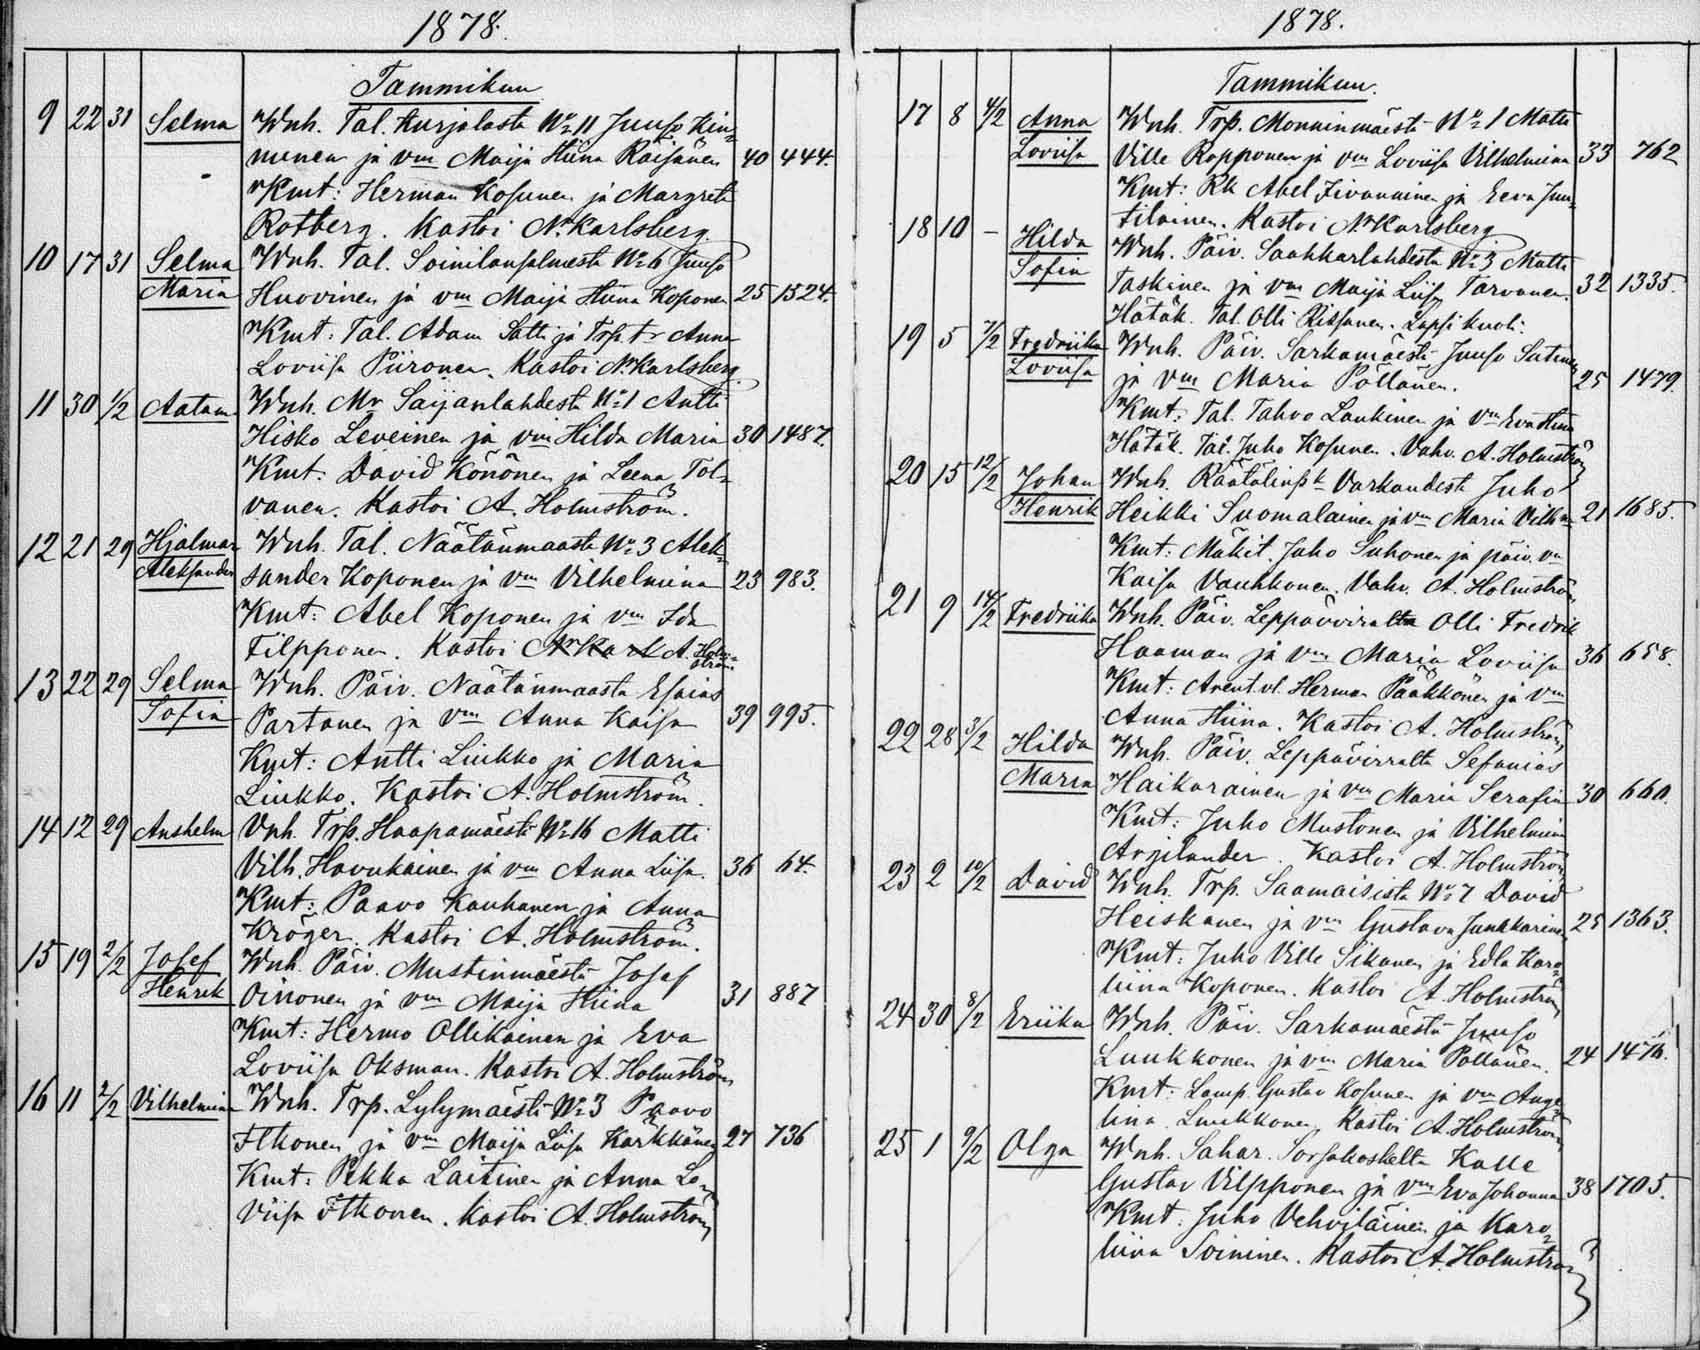 1878.
Tammikuu
9 22 31 Selma Wnh. Tal. Kurjalasta No 11 Juuso Kin=
nunen ja vm Maija Stiina Räisänen 40 444.
Kmt: Herman Kosunen ja Margreta
Rotberg. Kastoi N. Karlsberg.
10 17 31 Selma Wnh. Tal. Soinilansalmesta No 6 Juuso
Maria Huovinen ja vm Maija Stiina Koponen 25 1524.
Kmt: Tal. Adam Sutti ja Trp. tr Anna
Loviisa Piironen. Kastoi N. Karlsberg.
11 30 1/2 Aatam Wnh. Mr Saijanlahdesta No 1 Antti
Hisko Leveinen ja vm Hilda Maria 30 1487.
Kmt: David Könönen ja Leena Tol=
vanen. Kastoi A. Holmström.
12 21 29 Hjalmar Wnh. Tal. Näätänmaasta No 3 Alek=
Aleksander sander Koponen ja vm Vilhelmiina 23 983.
Kmt: Abel Koponen ja vm Ida
Filpponen. Kastoi A. Holm=
ström
13 22 29 Selma Wnh. Päiv. Näätänmaasta Esaias
Sofia Partanen ja vm Anna Kaisa 39 995.
Kmt: Antti Linkko ja Maria
Linkko. Kastoi A. Holmström.
14 12 29 Anshelm Vnh. Trp. Haapamäestä No 16 Matti
Vilh. Havukainen ja vm Anna Liisa. 36 64.
Kmt: Paavo Kauhanen ja Anna
Kröger. Kastoi A. Holmström.
15 19 2/2 Josef Wnh. Päiv. Mustinmäestä Josef
Henrik Oinonen ja vm Maija Stiina 31 887
Kmt: Hermo Ollikainen ja Eva
Loviisa Oksman. Kastoi A. Holmström
16 11 2/2 Vilhelmiina Wnh. Trp. Lylymäestä No 3 Paavo
Itkonen ja vm Maija Liisa Kärkkäinen 27 736
Kmt: Pekka Laitinen ja Anna Lo=
viisa Itkonen. Kastoi A. Holmström
1878.
Tammikuu.
17 8 4/2 Anna Wnh. Trp. Monninmäestä No 1 Matti
Loviisa Ville Ropponen ja vm Loviisa Vilhelmiina 33 762
Kmt: Rk Abel Iivanainen ja Eeva Juu=
tilainen. Kastoi N. Karlsberg
18 10 – Hilda Wnh. Päiv. Saahkarlahdesta No 3 Matti
Sofia Taskinen ja vm Maija Liisa Tarvanen. 32 1335.
Hätäk. Tal. Olli Ritsanen. Lapsi kuoli.
19 5 7/2 Fredriika Wnh. Päiv. Sarkamäestä Juuso Sutinen
Loviisa ja vm Maria Pöllänen. 25 1479.
Kmt: Tal. Tahvo Laukinen ja Vm Eva Stiina
Hätäk. Tal. Juho Kosunen. Vahv. A. Holmström
20 15 12/2 Johan Wnh. Räätälinsk Varkaudesta Juho
Henrik Heikki Suomalainen ja vm Maria Vilh 21 1685.
Kmt: Mäkit. Juho Suhonen ja päiv. vm
Kaisa Vauhkonen. Vahv. A. Holmström.
21 9 14/2 Fredriika Wnh. Päiv. Leppävirralta Olli Fredrik
Haaman ja vm Maria Loviisa 36 658.
Kmt: Arent.vl. Herman Pääkkönen ja vm
Anna Stiina. Kastoi A. Holmström
22 28 3/2 Hilda Wnh. Päiv. Leppävirralta Sefanias
Maria Haikarainen ja vm Maria Serafia 30 660.
Kmt: Juho Mustonen ja Vilhelmiina
Argilander. Kastoi A. Holmström
23 2 10/2 David Wnh. Trp. Saamaisista No 7 David
Heiskanen ja vm Gustava Junkkarinen 25 1363.
Kmt: Juho Ville Sikanen ja Edla Karo=
liina Koponen. Kastoi A. Holmström
24 30 8/2 Eriika Wnh. Päiv. Sarkamäestä Juuso
Luukkonen ja vm Maria Pöllänen. 24 1476.
Kmt: Lamp. Gustav Kosunen ja vm Ange
liina Luukkonen. Kastoi A. Holmström
25 1 9/2 Olga Wnh. Sahar. Sorsakoskelta Kalle
Gustav Vilpponen ja Vm Eva Johanna 38 1705.
Kmt: Juho Vehviläinen ja Karo=
liina Soininen. Kastoi A. Holmström